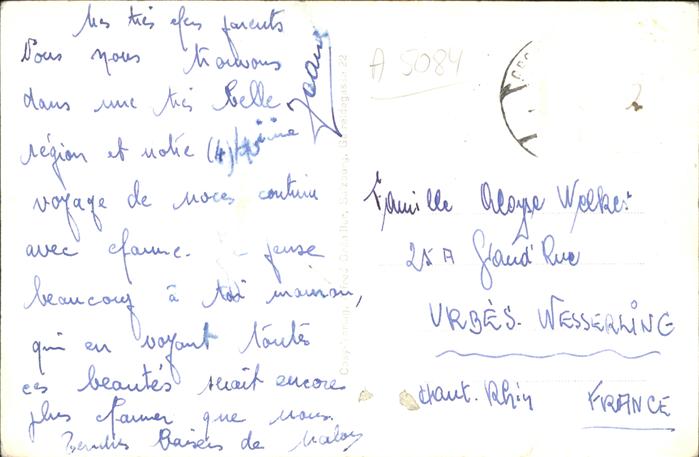 Mes très chers parents
Nous nous trouvons
dans une très belle
région et notre (4)ième
voyage de noces continue
avec charme. Je pense
beaucoup à toi maman,
qui en voyant toutes
ces beautés serait encore
plus charmée que nous.
Tendres baisers de
Jeanne
A 5084
2
Famille Aloyse Welker
25A Grand'Rue
URBÈS-WESSERLING
Haut-Rhin FRANCE